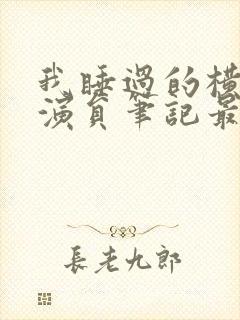 我睡過的橫
演員筆記最
長老九郎